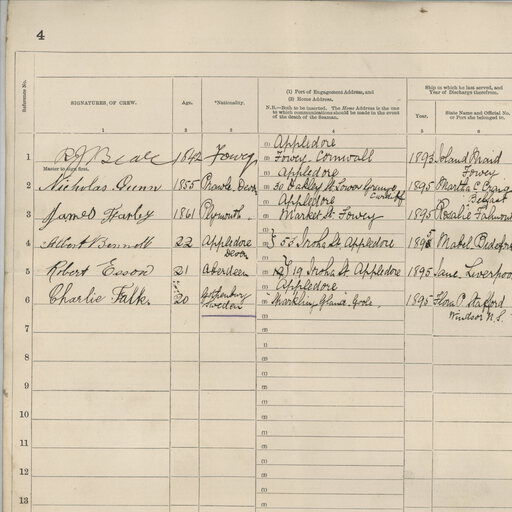 4
Reference No.
SIGNATURES, OF CREW.
Age.
*Nationality.
(1) Port of Engagement Address, and
(2) Home Address.
N.B.—Both to be inserted. The Home Address is the one
to which communications should be made in the event
of the death of the Seaman.
Ship in which he last served, and
Year of Discharge therefrom.
Year.
State Name and Official No.
or Port she belonged to.
1 2 3 4 5 6
1 R J Beale 1842 Fowey (1) Appledore
(2) Fowey Cornwall 1893 Island Maid
Fowey
Master to sign first.
2 Nicholas Bunn 1855 Prawle Devon (1) Appledore
(2) 30 Oakley St Lower Grange Cardiff 1895 Martha C Craig
Belfast
3 James Farley 1861 Plymouth (1) Appledore
(2) Market St Fowey 1895 Rosalie Falmouth
4 Albert Bennett 22 Appledore
Devon (1)
(2) 53 Irsha St Appledore 1895 Mabel Bideford
5 Robert Esson 21 Aberdeen (1)
(2) 19 Irsha St Appledore 1895 Jane Liverpool
6 Charlie Falk. 20 Gothenburg
Sweden (1) Appledore
(2) 1895 Flora P. Stafford
Windsor N.S.
7 (1)
(2)
8 (1)
(2)
9 (1)
(2)
10 (1)
(2)
11 (1)
(2)
12 (1)
(2)
13 (1)
(2)